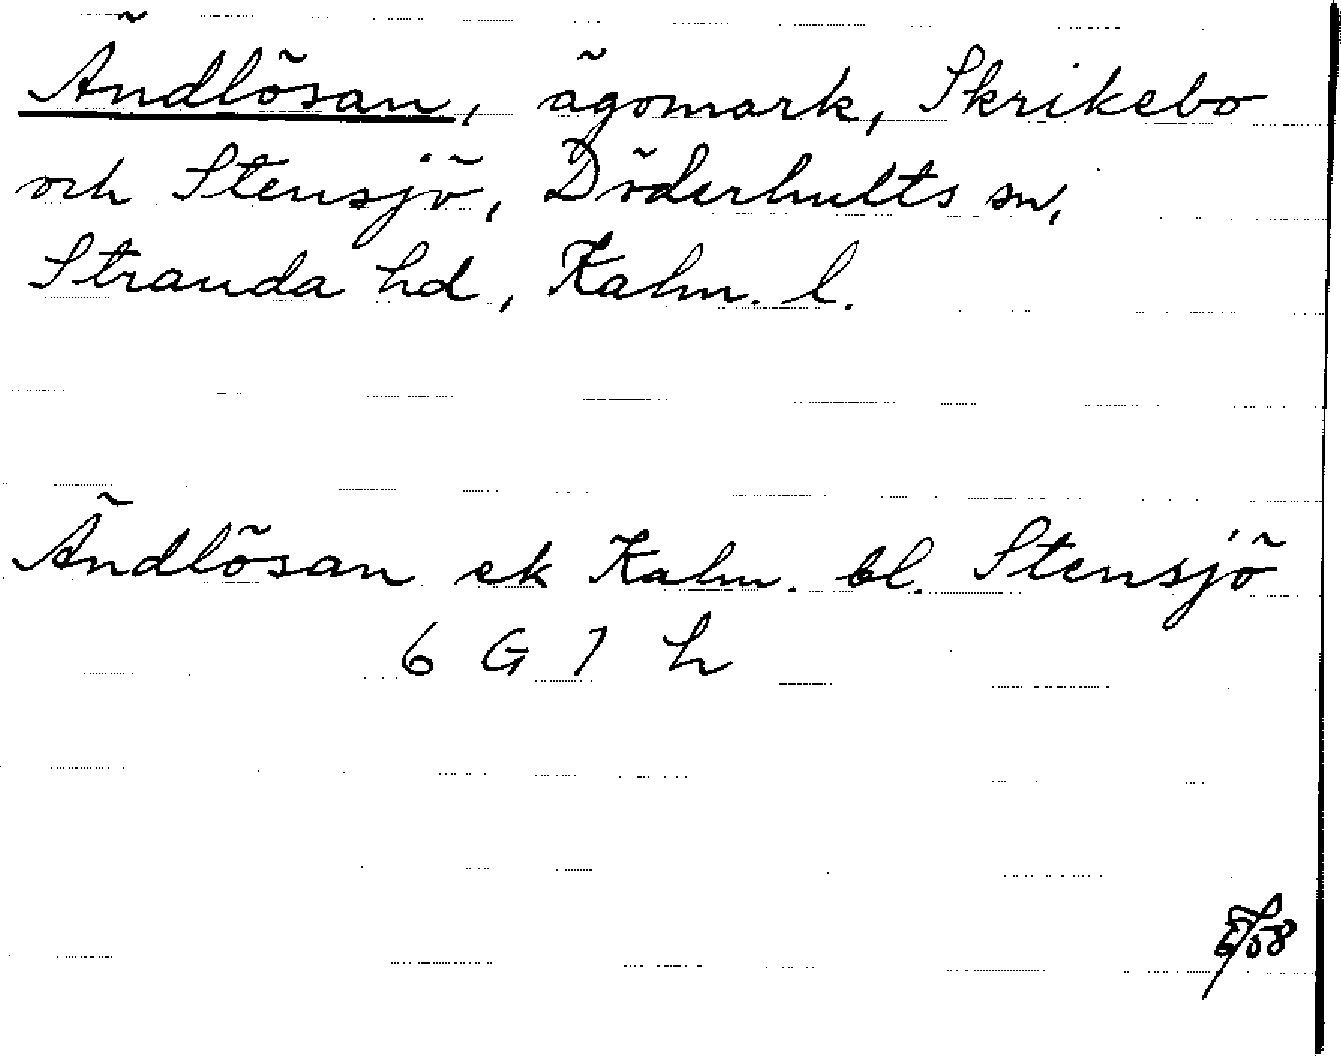 Ändlösan, ägomark, Skrikebo
och Stensjö, Döderhults sn,
Stranda hd, Kalm. l.
Ändlösan ek Kalm. bl. Stensjö
6 G 7 h